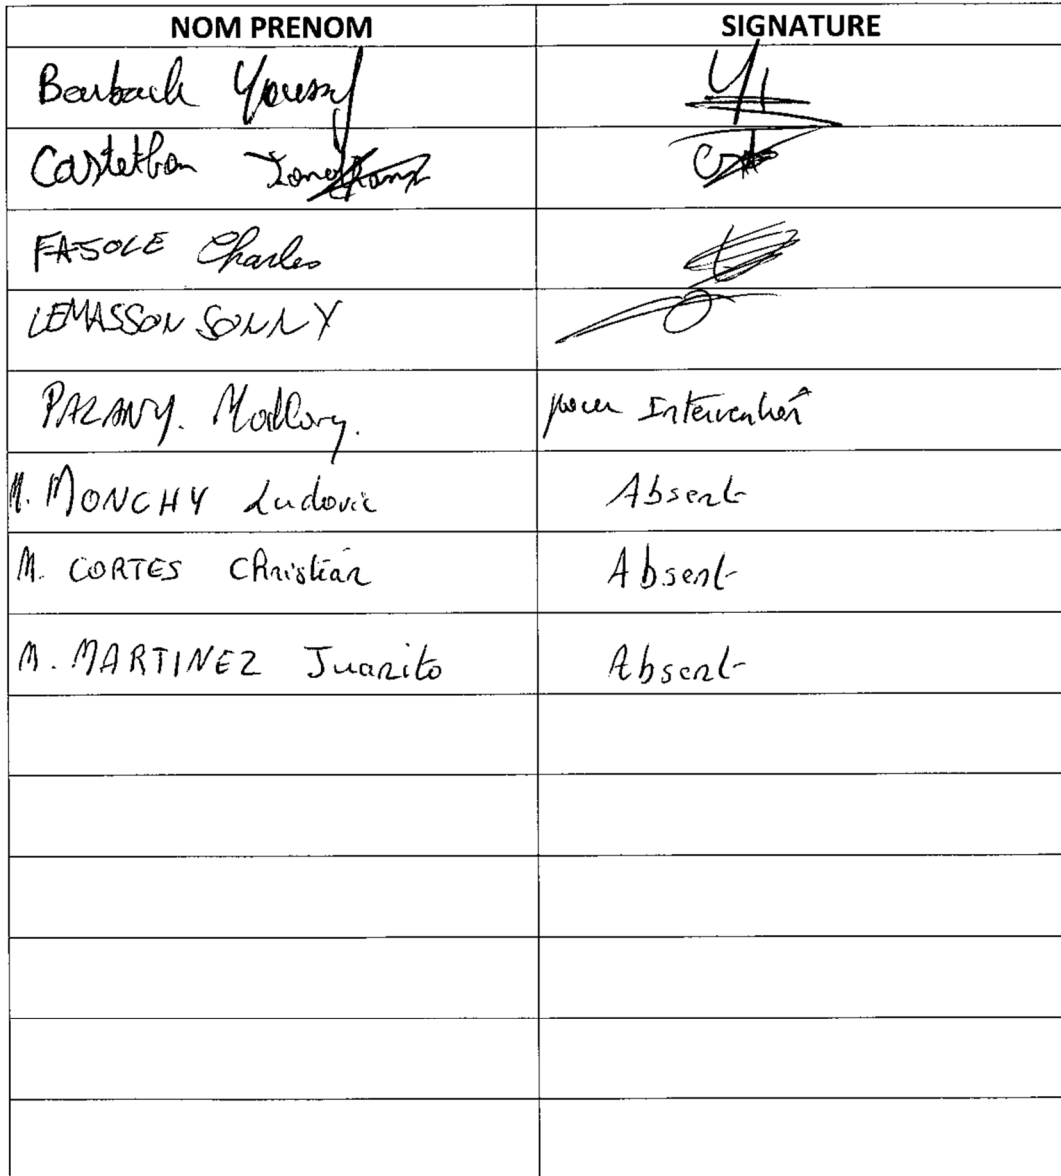 NOM PRENOM SIGNATURE
Youssef
Castetbon
FASOLE Charles
LEMASSON SONNY
PAZANY. Mallory. pour Intervention
M. MONCHY Ludovic Absent
M. CORTES Christian Absent
M. MARTINEZ Juanito Absent